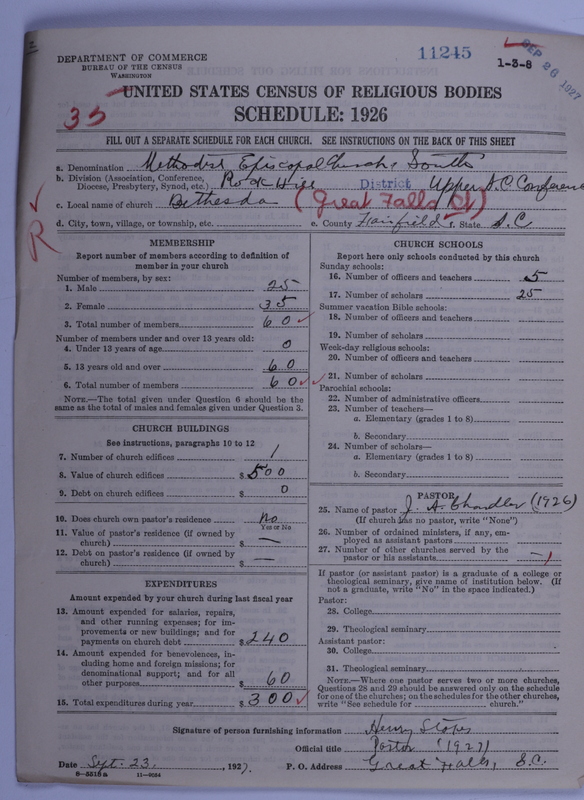 DEPARTMENT OF COMMERCE
BUREAU OF THE CENSUS
WASHINGTON
11245
1-3-8
SEP 26 1927
35
UNITED STATES CENSUS OF RELIGIOUS BODIES
SCHEDULE: 1926
FILL OUT A SEPARATE SCHEDULE FOR EACH CHURCH. SEE INSTRUCTIONS ON THE BACK OF THIS SHEET
a. Denomination Methodist Episcopal Church South
b. Division (Association, Conference, Diocese, Presbytery, Synod, etc.) Rock Hill District Upper S.C. Conference
c. Local name of church Bethesda (Great Falls Ct)
d. City, town, village, or township, etc. e. County Fairfield f. State S.C
R
MEMBERSHIP
Report number of members according to definition of
member in your church
Number of members, by sex:
1. Male 25
2. Female 35
3. Total number of members 60
Number of members under and over 13 years old:
4. Under 13 years of age 0
5. 13 years old and over 60
6. Total number of members 60
NOTE.—The total given under Question 6 should be
same as the total of males and females given under Question 3.
CHURCH BUILDINGS
See instructions, paragraphs 10 to 12
7. Number of church edifices 1
8. Value of church edifices $ 500
9. Debt on church edifices $ 0
10. Does church own pastor's residence No
Yes or No
11. Value of pastor's residence (if owned by
church) $ —
12. Debt on pastor's residence (if owned by
church) $ —
EXPENDITURES
Amount expended by your church during last fiscal year
13. Amount expended for salaries, repairs,
and other running expenses; for im-
provements or new buildings; and for
payments on church debt $ 240
14. Amount expended for benevolences, in-
cluding home and foreign missions; for
denominational support; and for all
other purposes $ 60
15. Total expenditures during year $ 300
CHURCH SCHOOLS
Report here only schools conducted by this church
Sunday schools:
16. Number of officers and teachers 5
17. Number of scholars 25
Summer vacation Bible schools:
18. Number of officers and teachers
19. Number of scholars
Week-day religious schools:
20. Number of officers and teachers
21. Number of scholars
Parochial schools:
22. Number of administrative officers
23. Number of teachers—
a. Elementary (grades 1 to 8)
b. Secondary
24. Number of scholars—
a. Elementary (grades 1 to 8)
b. Secondary
PASTOR
25. Name of pastor J. A. Chandler (1926)
(If church has no pastor, write "None")
26. Number of ordained ministers, if any, em-
ployed as assistant pastors
27. Number of other churches served by the
pastor or his assistants
If pastor (or assistant pastor) is a graduate of a college or
theological seminary, give name of institution below. (If
not a graduate, write "No" in the space indicated.)
Pastor:
28. College
29. Theological seminary
Assistant pastor:
30. College
31. Theological seminary
NOTE.—Where one pastor serves two or more churches,
Questions 28 and 29 should be answered only on the schedule
for one of the churches; on the schedules for the other churches,
write "See schedule for church."
Signature of person furnishing information Henry Stokes
Official title Pastor (1927)
Date Sept. 23, 1927. P. O. Address Great Falls, S.C.
8—5518a 11—9024